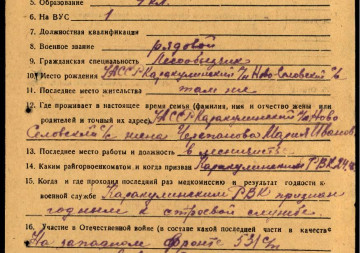 5. Образование 4 кл.
6. На ВУС 1
7. Должностная квалификация
8. Военное звание рядовой
9. Гражданская специальность Лесообъездчик
10. Место рождения УАССР Каракулинский р/н Ново-Соловский с/с
11. Последнее место жительства там же
12. Где проживает в настоящее время семья (фамилия, имя и отчество жены или
родителей и точный их адрес) УАССР Каракулинский р/н Ново
Соловский с/с жена Мария Иванов
13. Последнее место работы и должность в лесничестве
14. Каким райгорвоенкоматом и когда призван Каракулинским РВК
15. Когда и где проходил последний раз медкомиссию и результат годности к
военной службе Каракулинским РВК признан
годным к строевой службе.
16. Участие в Отечественной войне (в составе какой последней части и в качестве
На западном фронте 531 с/п